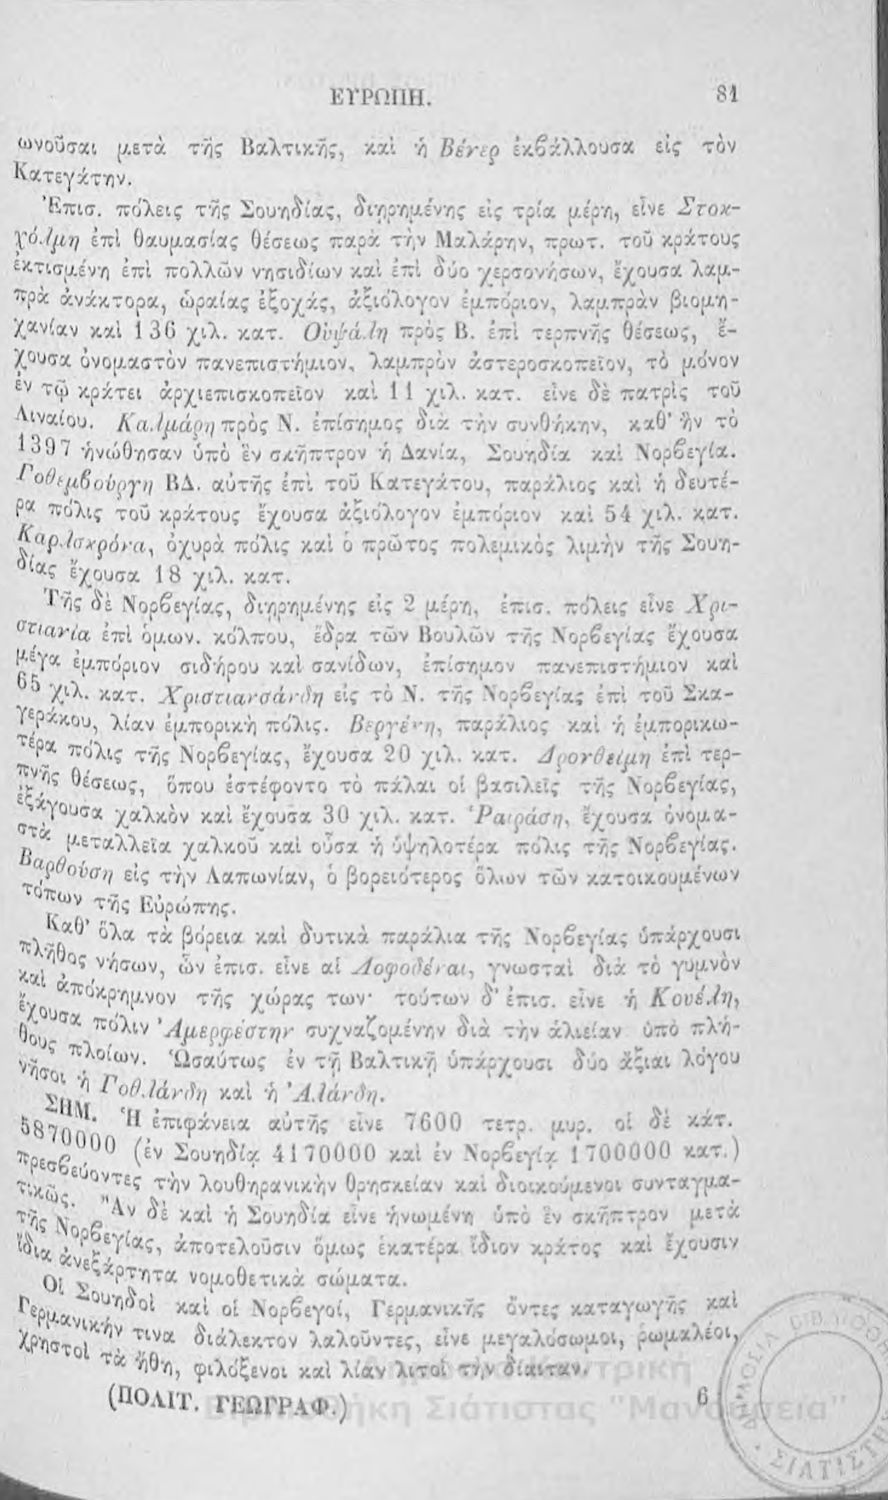 ΕΥΡΩΠΗ. 81
ωνοῦσαι μετὰ τῆς Βαλτικῆς, καὶ ἡ Βένερ ἐκβάλλουσα εἰς τὸν
Κατεγάτην.
Ἐπισ. πόλεις τῆς Σουηδίας, διῃρημένης εἰς τρία μέρη, εἶνε Στοκ-
χόλμη ἐπὶ θαυμασίας θέσεως παρὰ τὴν Μαλάρην, πρωτ. τοῦ κράτους
ἐκτισμένη ἐπὶ πολλῶν νησιδίων καὶ ἐπὶ δύο χερσονήσων, ἔχουσα λαμ-
πρὰ ἀνάκτορα, ὡραίας ἐξοχάς, ἀξιόλογον ἐμπόριον, λαμπρὰν βιομη-
χανίαν καὶ 136 χιλ. κατ. Οὐψάλη πρὸς Β. ἐπὶ τερπνῆς θέσεως, ἔ-
χουσα ὀνομαστὸν πανεπιστήμιον, λαμπρὸν ἀστεροσκοπεῖον, τὸ μόνον
ἐν τῷ κράτει ἀρχιεπισκοπεῖον καὶ 11 χιλ. κατ. εἶνε δὲ πατρὶς τοῦ
Λιναίου. Καλμάρη πρὸς Ν. ἐπίσημος διὰ τὴν συνθήκην, καθ' ἣν τὸ
1397 ἡνώθησαν ὑπὸ ἓν σκῆπτρον ἡ Δανία, Σουηδία καὶ Νορβεγία.
Γοθεμβούργη ΒΔ. αὐτῆς ἐπὶ τοῦ Κατεγάτου, παράλιος καὶ ἡ δευτέ-
ρα πόλις τοῦ κράτους ἔχουσα ἀξιόλογον ἐμπόριον καὶ 54 χιλ. κατ.
Καρλσκρόνα, ὀχυρὰ πόλις καὶ ὁ πρῶτος πολεμικὸς λιμὴν τῆς Σουη-
δίας ἔχουσα 18 χιλ. κατ.
Τῆς δὲ Νορβεγίας, διῃρημένης εἰς 2 μέρη, ἐπισ. πόλεις εἶνε Χρι-
στιανία ἐπὶ ὁμων. κόλπου, ἕδρα τῶν Βουλῶν τῆς Νορβεγίας ἔχουσα
μέγα ἐμπόριον σιδήρου καὶ σανίδων, ἐπίσημον πανεπιστήμιον καὶ
65 χιλ. κατ. Χριστιανσάνδη εἰς τὸ Ν. τῆς Νορβεγίας ἐπὶ τοῦ Σκα-
γεράκου, λίαν ἐμπορικὴ πόλις. Βεργένη, παράλιος καὶ ἡ ἐμπορικω-
τέρα πόλις τῆς Νορβεγίας, ἔχουσα 20 χιλ. κατ. Δρονθείμη ἐπὶ τερ-
πνῆς θέσεως, ὅπου ἐστέφοντο τὸ πάλαι οἱ βασιλεῖς τῆς Νορβεγίας,
ἐξάγουσα χαλκὸν καὶ ἔχουσα 30 χιλ. κατ. Ῥαιράση, ἔχουσα ὀνομα-
στὰ μεταλλεῖα χαλκοῦ καὶ οὖσα ἡ ὑψηλοτέρα πόλις τῆς Νορβεγίας.
Βαρθούση εἰς τὴν Λαπωνίαν, ὁ βορειότερος ὅλων τῶν κατοικουμένων
τόπων τῆς Εὐρώπης.
Καθ' ὅλα τὰ βόρεια καὶ δυτικὰ παράλια τῆς Νορβεγίας ὑπάρχουσι
πλῆθος νήσων, ὧν ἐπισ. εἶνε αἱ Λοφοδέναι, γνωσταὶ διὰ τὸ γυμνὸν
καὶ ἀπόκρημνον τῆς χώρας των· τούτων δ' ἐπισ. εἶνε ἡ Κουέλη,
ἔχουσα πόλιν Ἀμερφέστην συχναζομένην διὰ τὴν ἁλιείαν ὑπὸ πλή-
θους πλοίων. Ὡσαύτως ἐν τῇ Βαλτικῇ ὑπάρχουσι δύο ἄξιαι λόγου
νῆσοι ἡ Γοθλάνδη καὶ ἡ Ἀλάνδη.
ΣΗΜ. Ἡ ἐπιφάνεια αὐτῆς εἶνε 7600 τετρ. μυρ. οἱ δὲ κάτ.
5870000 (ἐν Σουηδίᾳ 4170000 καὶ ἐν Νορβεγίᾳ 1700000 κατ.)
πρεσβεύοντες τὴν λουθηρανικὴν θρησκείαν καὶ διοικούμενοι συνταγμα-
τικῶς. Ἂν δὲ καὶ ἡ Σουηδία εἶνε ἡνωμένη ὑπὸ ἓν σκῆπτρον μετὰ
τῆς Νορβεγίας, ἀποτελοῦσιν ὅμως ἑκατέρα ἴδιον κράτος καὶ ἔχουσιν
ἴδια ἀνεξάρτητα νομοθετικὰ σώματα.
Οἱ Σουηδοὶ καὶ οἱ Νορβεγοί, Γερμανικῆς ὄντες καταγωγῆς καὶ
Γερμανικήν τινα διάλεκτον λαλοῦντες, εἶνε μεγαλόσωμοι, ῥωμαλέοι,
χρηστοὶ τὰ ἤθη, φιλόξενοι καὶ λίαν λιτοὶ τὴν δίαιταν.
(ΠΟΛΙΤ. ΓΕΩΓΡΑΦ.) 6
Δημόσια Κεντρική
Βιβλιοθήκη Σιάτιστας "Μανούσεια"
ΔΗΜΟΣΙΑ ΒΙΒΛΙΟΘΗ
ΣΙΑΤΙΣΤΗΣ